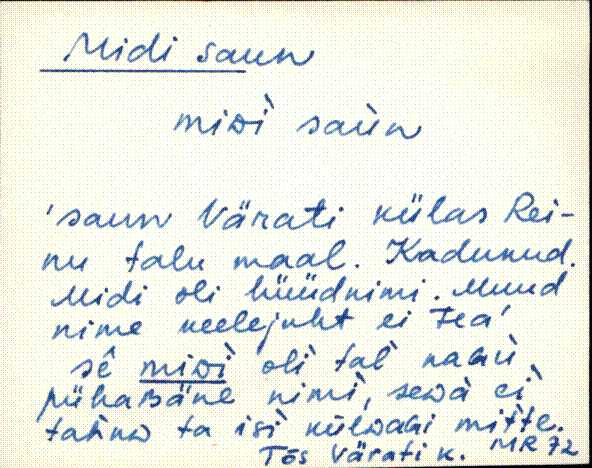 Midi saun
miᴅì saùn
'saun Värati külas Rei-
nu talu maal. Kadunud.
Midi oli hüüdnimi. Muud
nime keelejuht ei tea'
sê miᴅì olì tal̀ naɢù
pühaʙäne nimì, seᴅà eì
tahnᴅ ta isì külᴅaɢi mitte.
Tõs Värati k. MR 72